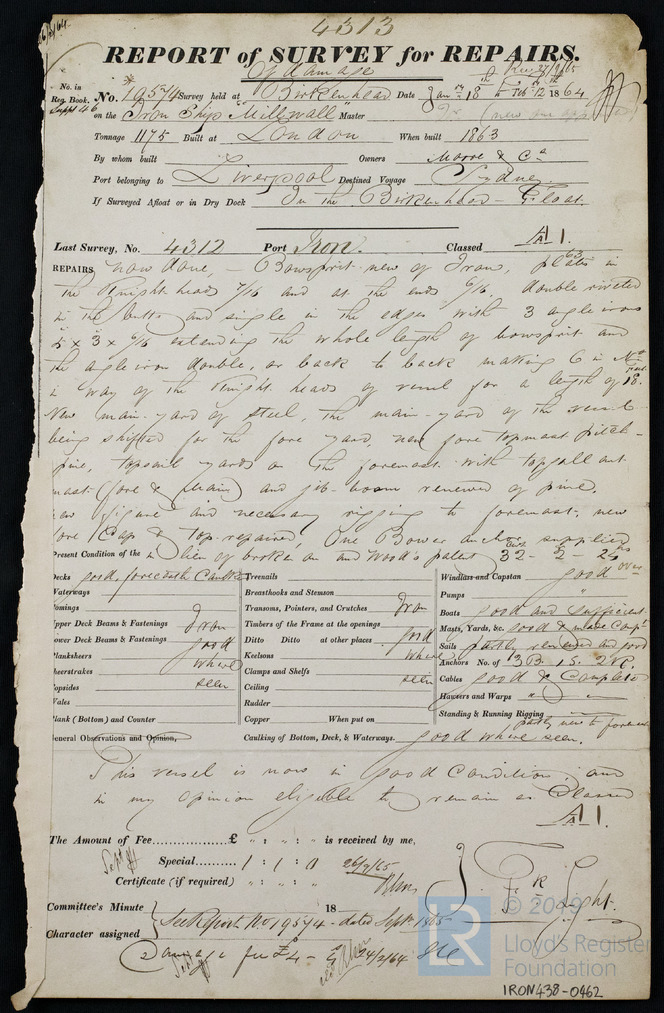 4313
REPORT of SURVEY for REPAIRS.
Of damage
No. in Reg. Book.
Suppt 46
No. 19574 Survey held at Birkenhead Date Jany 18 to Feb 12th 1864
on the Iron Ship "Millwall" Master
Tonnage 1175 Built at London When built 1863
By whom built Owners Moore & Co
Port belonging to Liverpool Destined Voyage Sydney
If Surveyed Afloat or in Dry Dock In the Birkenhead Float.
Last Survey, No. 4312 Port Iron Classed A 1.
REPAIRS now done, - Bowsprit new of Iron, plates in
the Knight heads 7/16 and at the ends 6/16, double riveted
in the butts and single in the edges with 3 angle irons
5 x 3 x 6/16 extending the whole length of bowsprit and
the angle iron double, or back to back making 6 in No
in way of the Knight heads of vessel for a length of 18 feet.
New main-yard of steel, the main-yard of the vessel
being shifted for the fore yard, new fore topmast pitch-
pine, topsail yards on the foremast with topgallant
mast (fore & main) and jib-boom renewed of pine,
new figure and necessary rigging to foremast, new
fore Cap & top repaired, One Bower anchor supplied
in lieu of broken on and Wood's patent 32 - 2 - 26 lbs
Present Condition of the
Decks good, forecastle Caulked
Waterways
Comings
Upper Deck Beams & Fastenings Iron
Lower Deck Beams & Fastenings good
Planksheers where
Sheerstrakes seen
Topsides
Wales
Plank (Bottom) and Counter
Treenails
Breasthooks and Stemson
Transons, Pointers, and Crutches Iron
Timbers of the Frame at the openings
Ditto Ditto at other places good
Keelsons where
Clamps and Shelfs seen
Ceiling
Rudder
Copper When put on
Caulking of Bottom, Deck, & Waterways. good where seen.
Windlass and Capstan good
Pumps "
Boats good and Sufficient
Masts, Yards, &c. good & made Compt
Sails partly renewed and good
Anchors No. of 3 B. 1 S. 2 K.
Cables good & Complete
Hawsers and Warps " "
Standing & Running Rigging partly new to foremast
General Observations and Opinion,
This vessel is now in good Condition, and
in my opinion eligible to remain as Classed
A 1.
The Amount of Fee £ " : " : " is received by me,
Special 1 : 1 : 0 26/9/65
Certificate (if required) " : " : "
J. F. R. Light.
Committee's Minute 18
Character assigned See Report No 19574 - dated Septr 1865
Damage fee £4 - 24/2/64
© 2019
Lloyd's Register
Foundation
LR
IRON438-0462